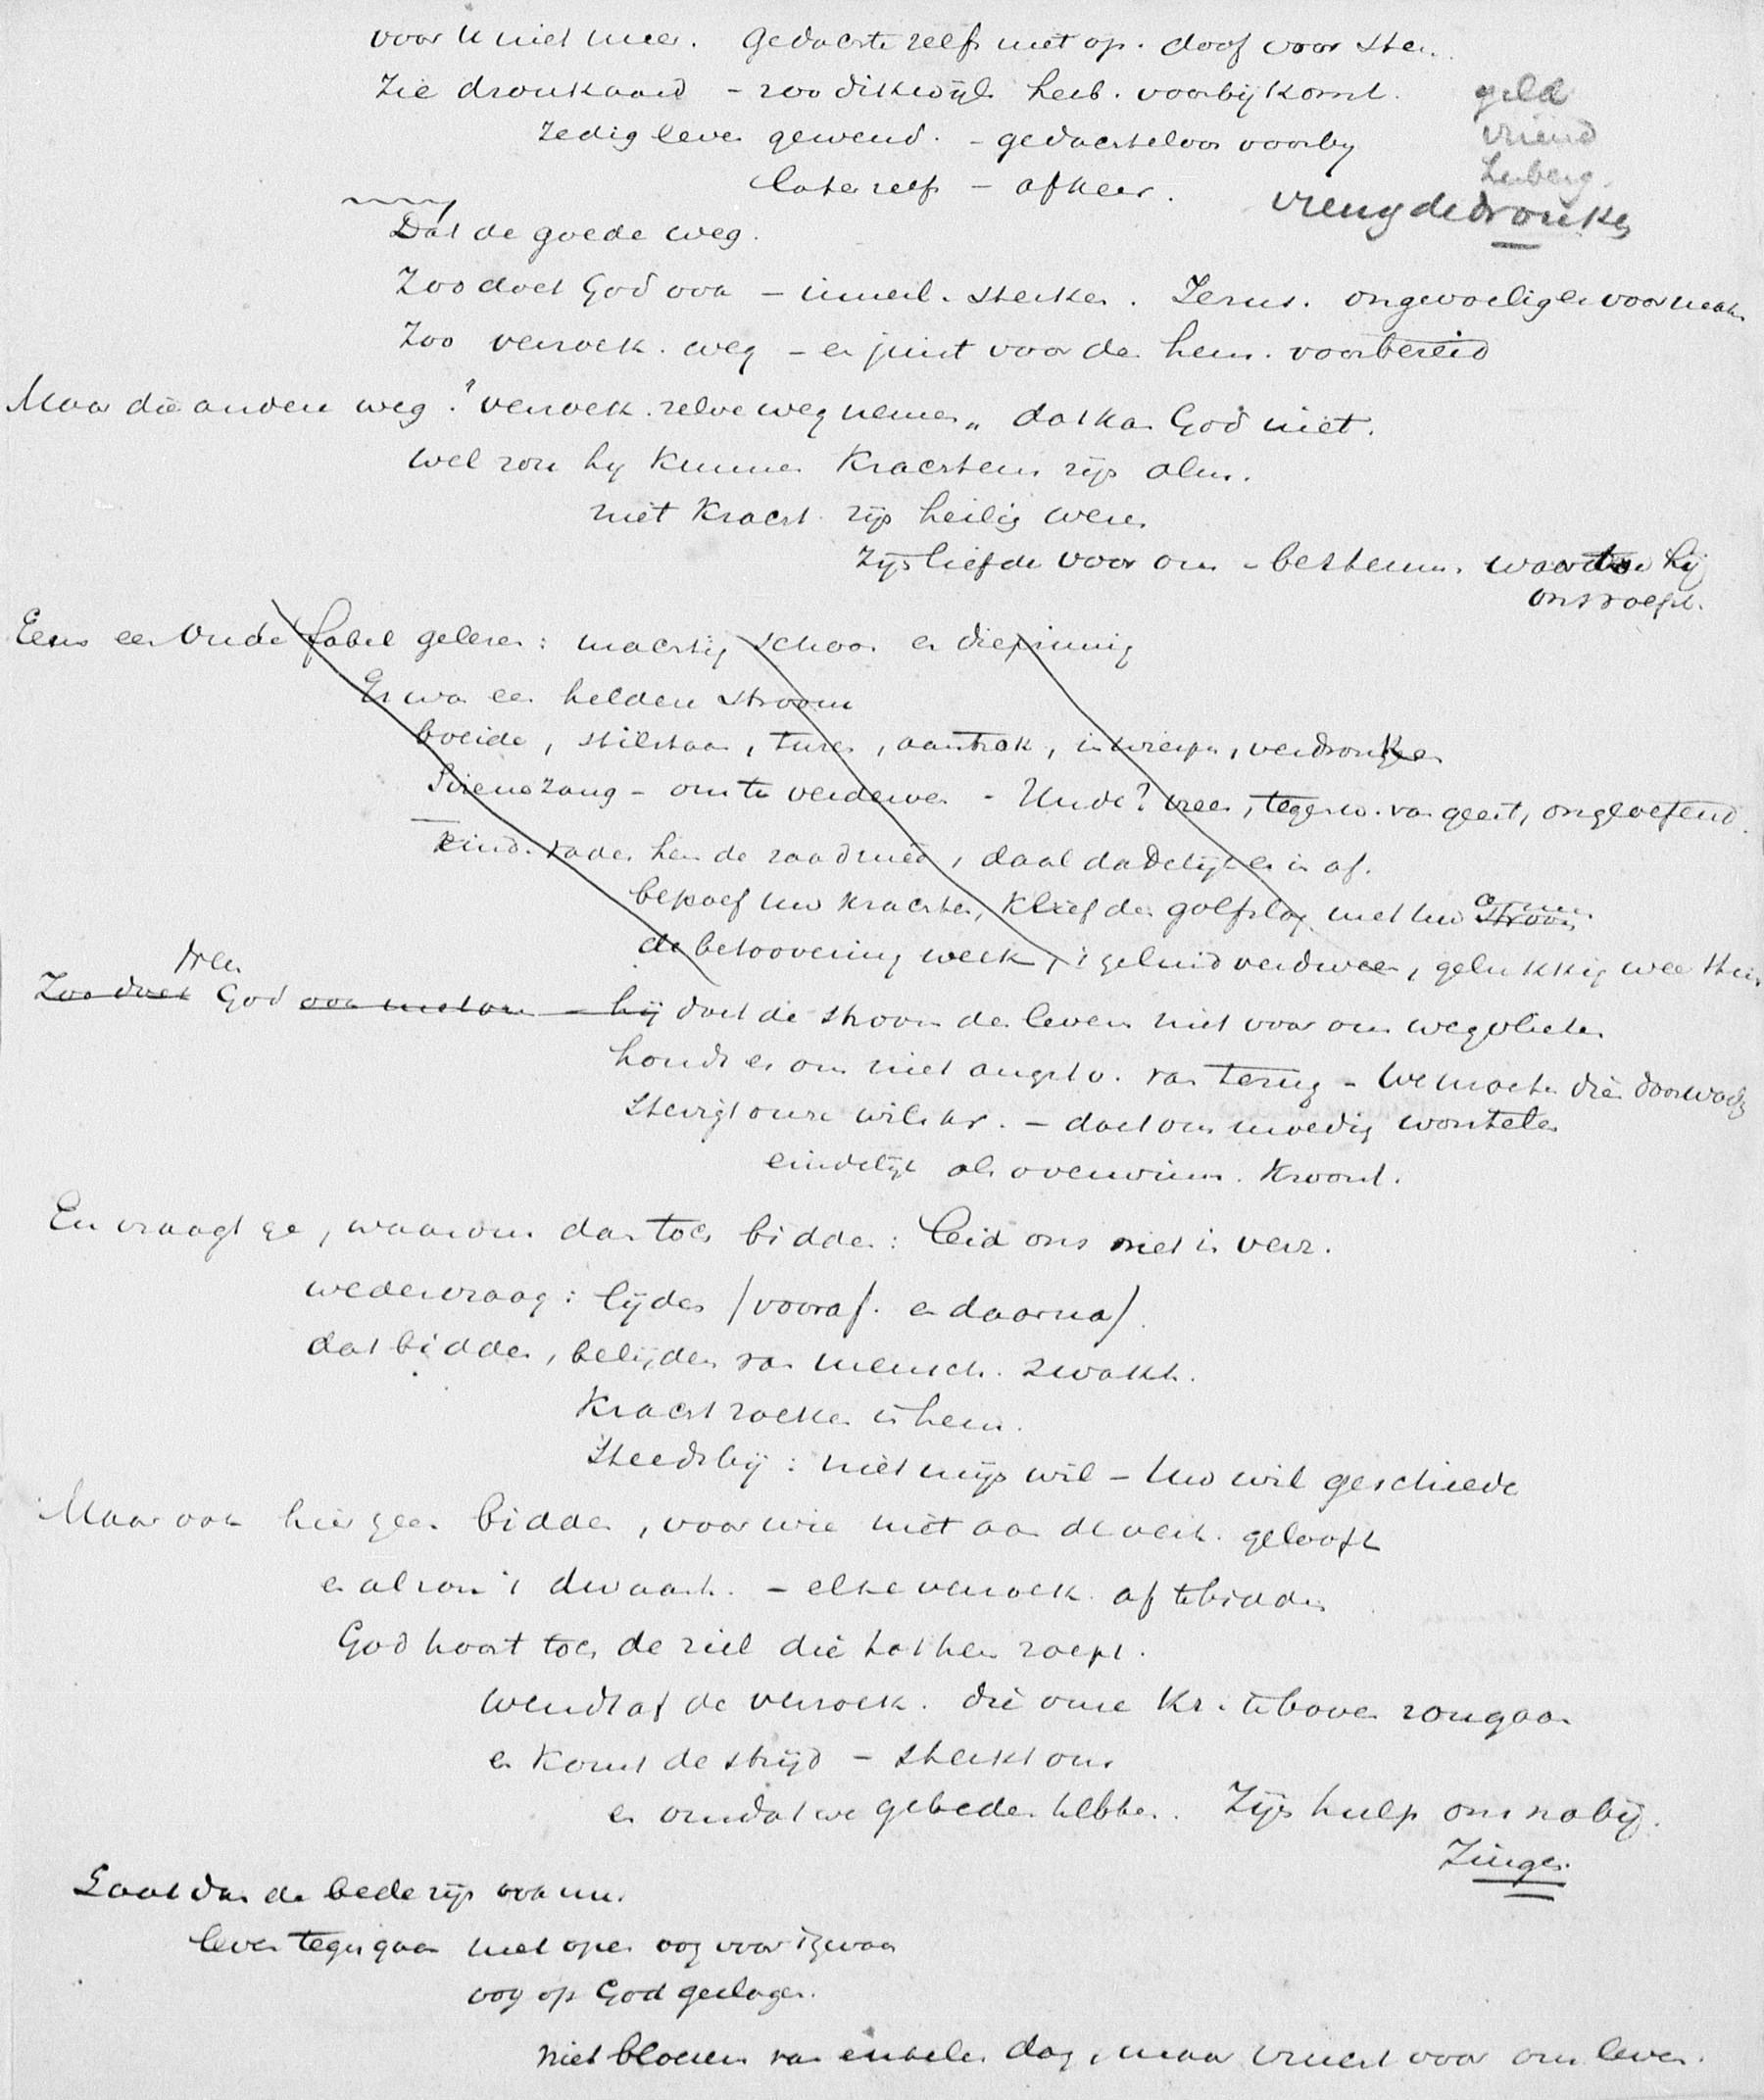 voor u niet meer. Gedachte zelfs niet op. doof voor stem.
Zie dronkaard – zoo dikwijls herb. voorbij komt.
geld
zedig leven gewend. – gedachteloos voorby
vriend
herberg.
later zelfs – afkeer.
vreugdedronken
Dat de goede weg.
Zoo doet God ook – inwend. sterker. Jezus. ongevoeliger voor maken
Zoo verzoek. weg – en juist voor den hem. voorbereid
Maar die andere weg? "verzoek. zelve wegnemen" dat kan God niet.
wel zou hy kunnen krachtens zijn alm.
niet kracht. zijn heilig wezen
Zijn liefde voor ons – bestemm. waartoe hij
ons roept.
Eens een oude fabel gelezen: machtig schoon en diepzinnig
Er was een heldere stroom
boeide, stilstaan, turen, aantrok, in wierpen, verdronken
Sirenezang – om te verderven – Uwe? vrees, tegenw. van geest, ongeoefend.
kind. vader hen de raad mee, daal dadelijk er in af.
beproef uw krachten, klief den golfslag met uw stroom armen
de betoovering week, 't geluid verdween, gelukkig wee
Neen
Zoo doet God ook met ons – hij doet de stroom des levens niet voor ons wegvlieten
houdt er ons niet angstv. van terug – We moeten die doorwaden
stevigt onze wilskr. – doet ons moedig worstelen
eindelijk als overwinn. kroont.
En vraagt ge, waarom dan toch bidden: leid ons niet in verz.
wedervraag: lijden / vooraf. en daarna /.
dat bidden, belijden van mensch. zwakh.
Kracht zoeken in hem.
Steeds bij: niet mijn wil – Uw wil geschiede
Maar ook hier geen bidden, voor wie niet aan de verh. gelooft
en al zou 't dwaash. – elke verzoek. af te bidden
God hoort toch de ziel die tot hem roept.
wendt af de verzoek. die onze kr. te boven zou gaan
en komt de strijd – sterkt ons
en omdat we gebeden hebben. Zijn hulp ons nabij.
Zingen.
Laat dan de bede zijn ook nu.
leven tegengaan met open oog voor 't gevaar
oog op God geslagen.
niet bloesem van enkelen dag, maar vrucht voor ons leven.